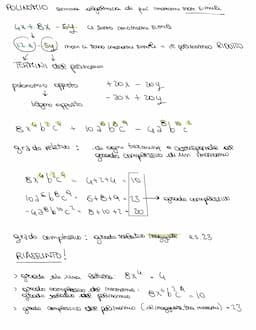 POLINOMIO somma algebrica di più monomi non simili
4x + 8x - 5y ci sono monomi simili
12x - 5y non ci sono monomi simili → è polinomio RIDOTTO
TERMINI del polinomio
polinomio opposto +20x - 20y
segno opposto - 20x + 20y
8x⁴b²c⁴ + 10a⁶b⁸c⁹ - 4a⁸b¹⁰c²
grado relativo:
grado complessivo di un monomio
8x⁴b²c⁴ = 4+2+4 = 10
10a⁶b⁸c⁹ = 6+8+9 = 23 → grado complessivo
-4a⁸b¹⁰c² = 8+10+2 = 20
grado complessivo: grado relativo maggiore es. 23
RIASSUNTO!
> grado di una lettera: 8x⁴ = 4
> grado complessivo del monomio
grado relativo del polinomio 8x⁴b²c⁴ = 10
> grado complessivo del polinomio (il maggiore tra monomi) = 23